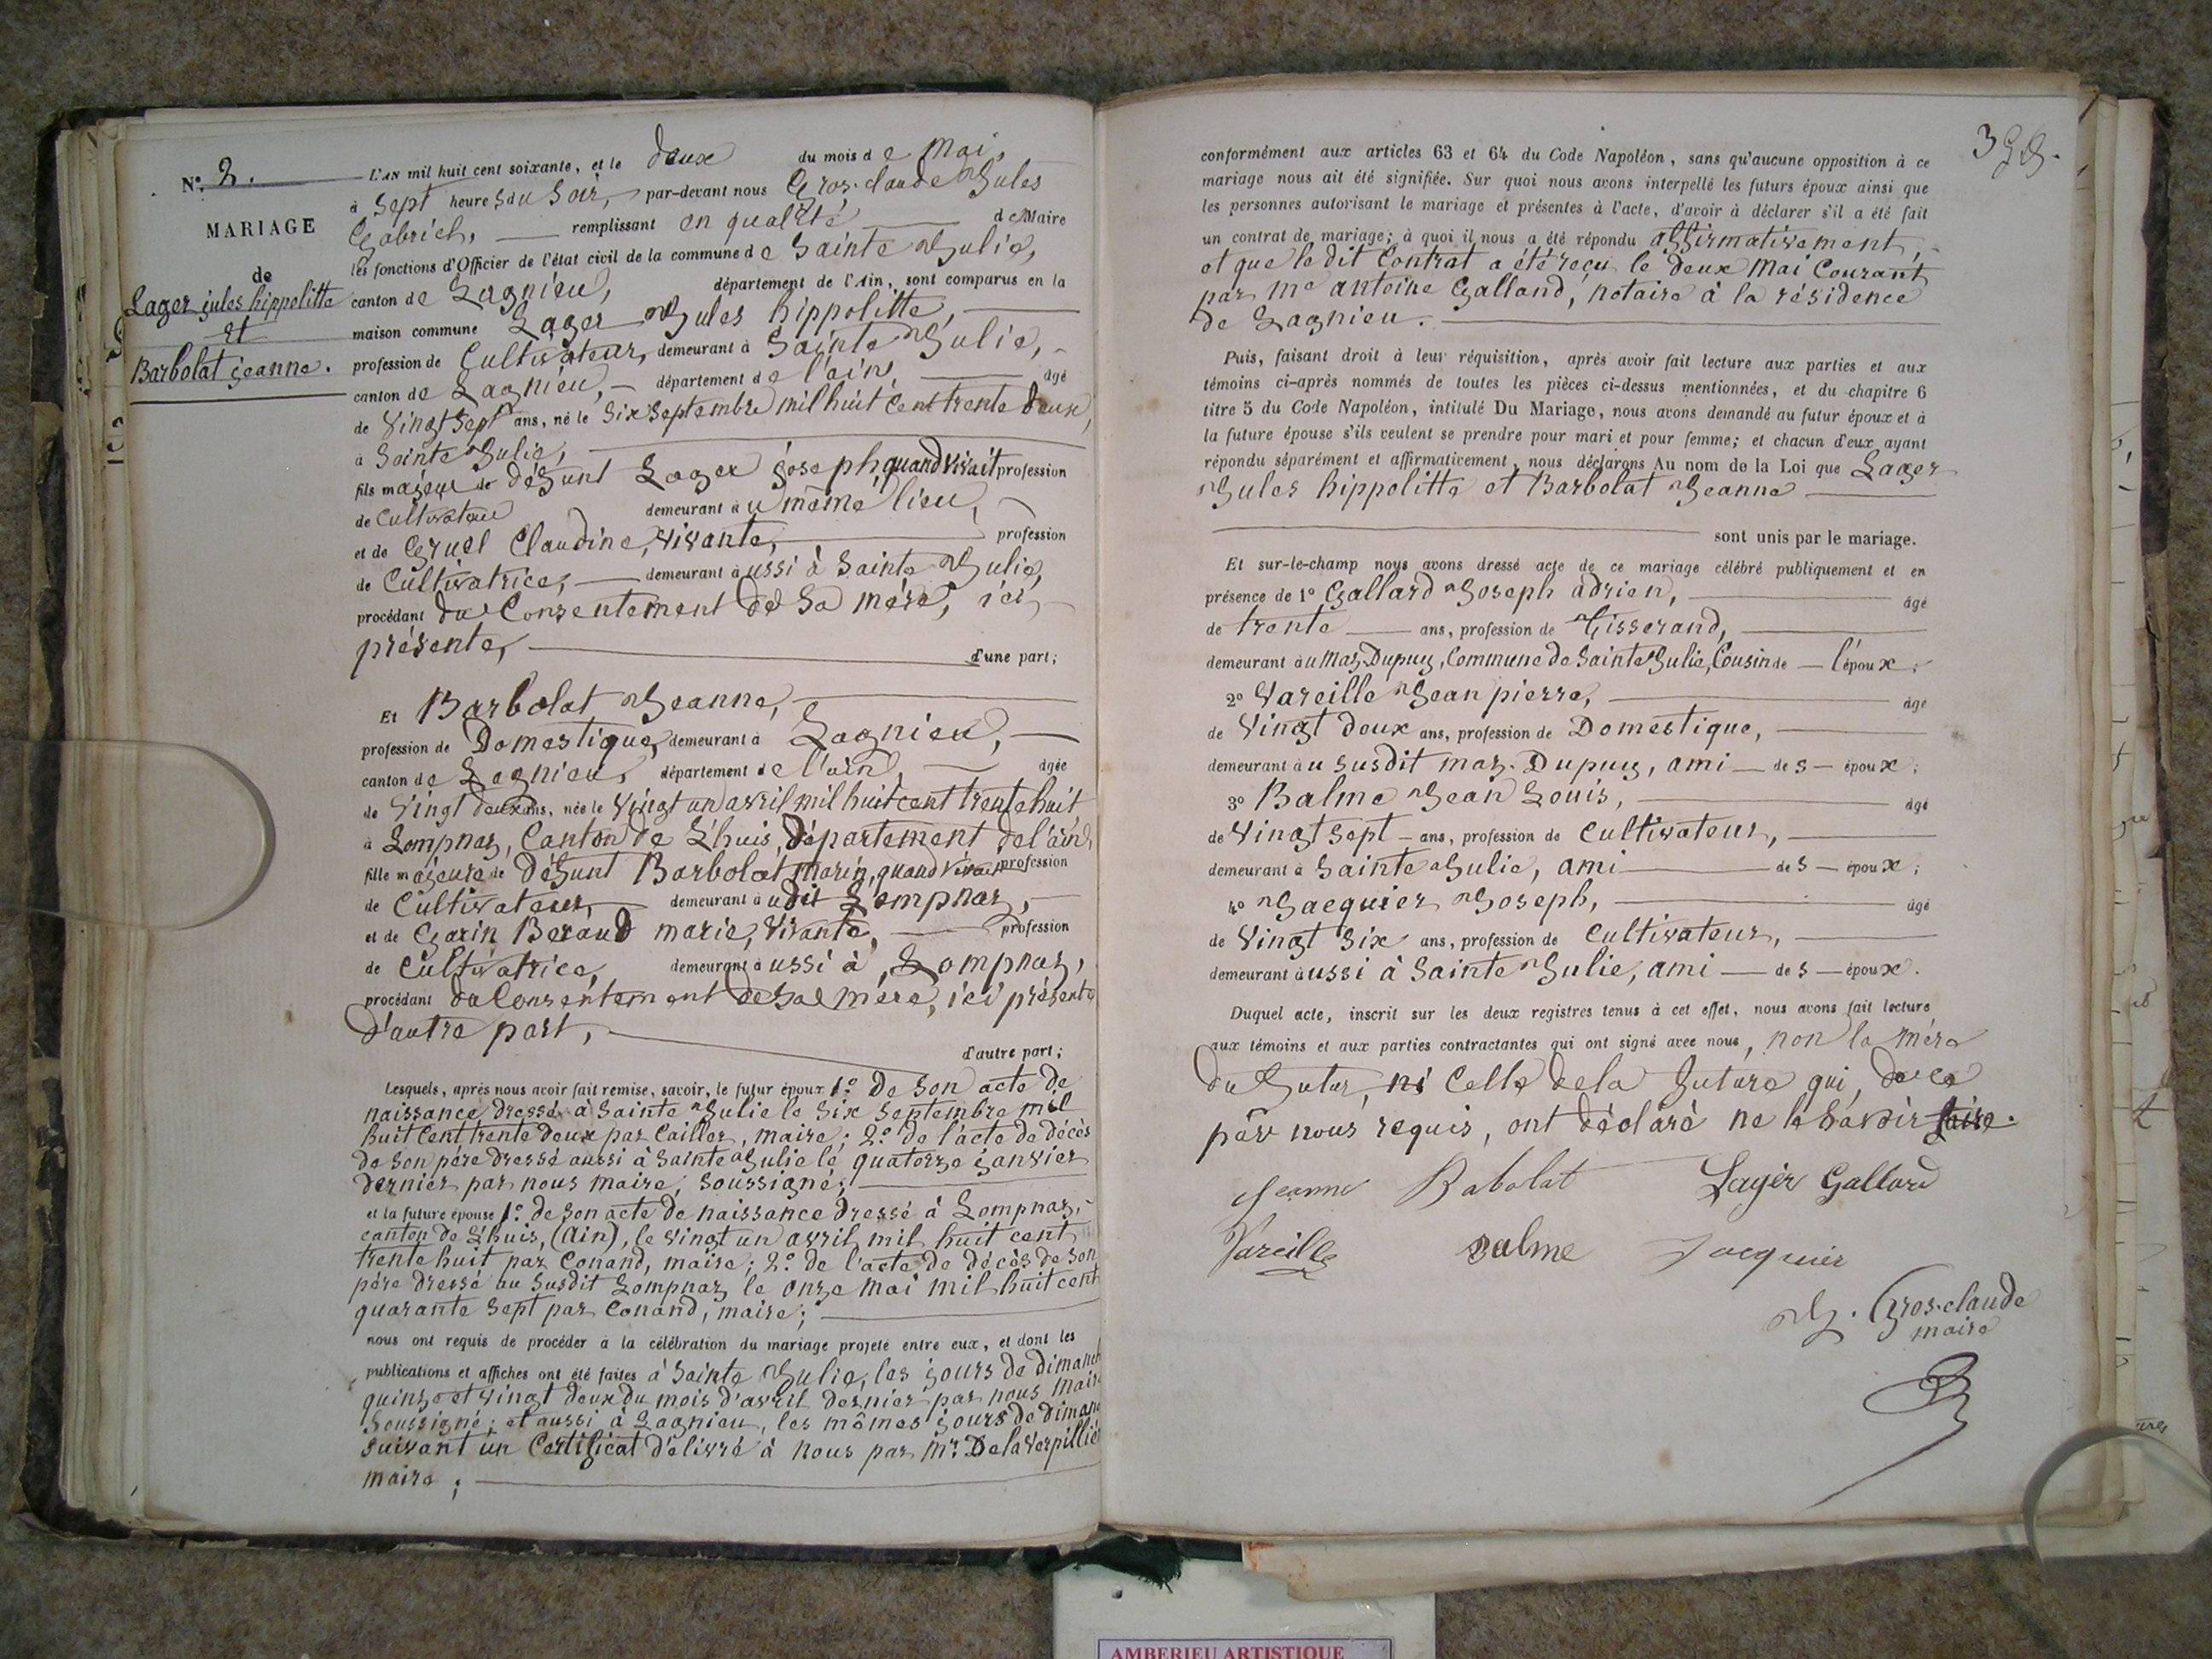 N.º 2.
MARIAGE
de
Lager jules hippolitte
et
Barbolat jeanne.
L'AN mil huit cent soixante, et le deux du mois de Mai,
à Sept heures du Soir, par-devant nous Gros-claude Jules
Gabriel, remplissant en qualité de Maire
les fonctions d'Officier de l'état civil de la commune de Sainte Julie,
canton de Lagnieu, département de l'Ain, sont comparus en la
maison commune Lager Jules hippolitte,
profession de Cultivateur, demeurant à Sainte Julie,
canton de Lagnieu, département de l'ain, âgé
de Vingt Sept ans, né le Six Septembre mil huit Cent trente deux,
à Sainte Julie,
fils majeur de défunt Lager joseph, quand vivait profession
de Cultivateur demeurant au même lieu,
et de Gruel Claudine, vivante, profession
de Cultivatrice, demeurant aussi à Sainte Julie,
procédant du Consentement de Sa mère, ici
présente, d'une part;
Et Barbolat Jeanne,
profession de Domestique, demeurant à Lagnieu,
canton de Lagnieu, département de l'ain, âgée
de Vingt deux ans, née le Vingt un avril mil huit cent trente huit
à Lompnaz, Canton de L'huis, département de l'ain,
fille majeure de défunt Barbolat Marin, quand vivait profession
de Cultivateur, demeurant au dit Lompnaz,
et de Garin Beraud marie, Vivante, profession
de Cultivatrice, demeurant aussi à Lompnaz,
procédant du Consentement de Sa mère, ici présente
d'autre part,
d'autre part;
Lesquels, après nous avoir fait remise, savoir, le futur époux 1º De Son acte de
naissance dressé à Sainte Julie le Six Septembre mil
huit Cent trente deux par Cailler, maire; 2º de l'acte de décès
de Son père dressé aussi à Sainte Julie le quatorze janvier
dernier par nous maire, Soussigné;
et la future épouse 1º de Son acte de naissance dressé à Lompnaz,
canton de L'huis, (Ain), le vingt un avril mil huit cent
trente huit par Conand, maire; 2º de l'acte de décès de Son
père dressé au Susdit Lompnaz le onze Mai mil huit cent
quarante Sept par Conand, maire;
nous ont requis de procéder à la célébration du mariage projeté entre eux, et dont les
publications et affiches ont été faites à Sainte Julie, les jours de dimanch
quinze et vingt deux du mois d'avril dernier par nous Maire
Soussigné; et aussi à Lagnieu, les mêmes jours de diman
suivant un Certificat délivré à nous par Mr. De la Verpilliè
maire;
398.
conformément aux articles 63 et 64 du Code Napoléon, sans qu'aucune opposition à ce
mariage nous ait été signifiée. Sur quoi nous avons interpellé les futurs époux ainsi que
les personnes autorisant le mariage et présentes à l'acte, d'avoir à déclarer s'il a été fait
un contrat de mariage; à quoi il nous a été répondu affirmativement,
et que le dit Contrat a été reçu le deux Mai Courant
par Me antoine Galland, notaire à la résidence
de Lagnieu.
Puis, faisant droit à leur réquisition, après avoir fait lecture aux parties et aux
témoins ci-après nommés de toutes les pièces ci-dessus mentionnées, et du chapitre 6
titre 5 du Code Napoléon, intitulé Du Mariage, nous avons demandé au futur époux et à
la future épouse s'ils veulent se prendre pour mari et pour femme; et chacun d'eux ayant
répondu séparément et affirmativement, nous déclarons Au nom de la Loi que Lager
Jules hippolitte et Barbolat Jeanne
sont unis par le mariage.
Et sur-le-champ nous avons dressé acte de ce mariage célébré publiquement et en
présence de 1º Gallard Joseph adrien, âgé
de trente ans, profession de Tisserand,
demeurant au Maz-Dupuy, Commune de Sainte Julie, Cousin de l'époux;
2º Vareille Jean pierre, âgé
de Vingt deux ans, profession de Domestique,
demeurant au susdit maz-Dupuy, ami des époux;
3º Balme Jean Louis, âgé
de Vingt Sept ans, profession de Cultivateur,
demeurant à Sainte Julie, ami des époux;
4º Jacquier Joseph, âgé
de Vingt Six ans, profession de Cultivateur,
demeurant aussi à Sainte Julie, ami des époux.
Duquel acte, inscrit sur les deux registres tenus à cet effet, nous avons fait lecture
aux témoins et aux parties contractantes qui ont signé avec nous, non la mère
du futur, ni Celle de la future qui, de ce
par nous requis, ont déclaré ne le Savoir faire.
Jeanne Babolat Lager Gallard
Vareille Balme Jacquier
J. Gros-claude
maire
AMBERIEU ARTISTIQUE